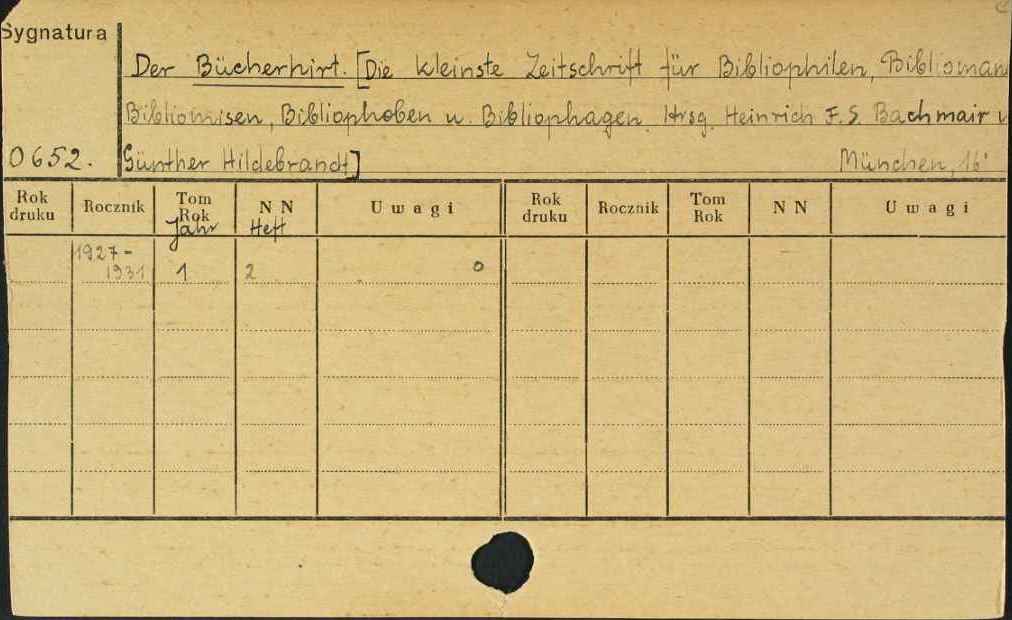 Sygnatura
Der Bücherhirt. [Die kleinste Zeitschrift für Bibliophilen, Biblioman
Bibliomisen, Bibliophoben u. Bibliophagen. Hrsg. Heinrich F.S. Bachmair u
0652. Günther Hildebrandt] München, 16°
Rok druku Rocznik Tom Rok NN Uwagi Rok druku Rocznik Tom Rok NN Uwagi
Jahr Heft
1927-
1931 1 2 o